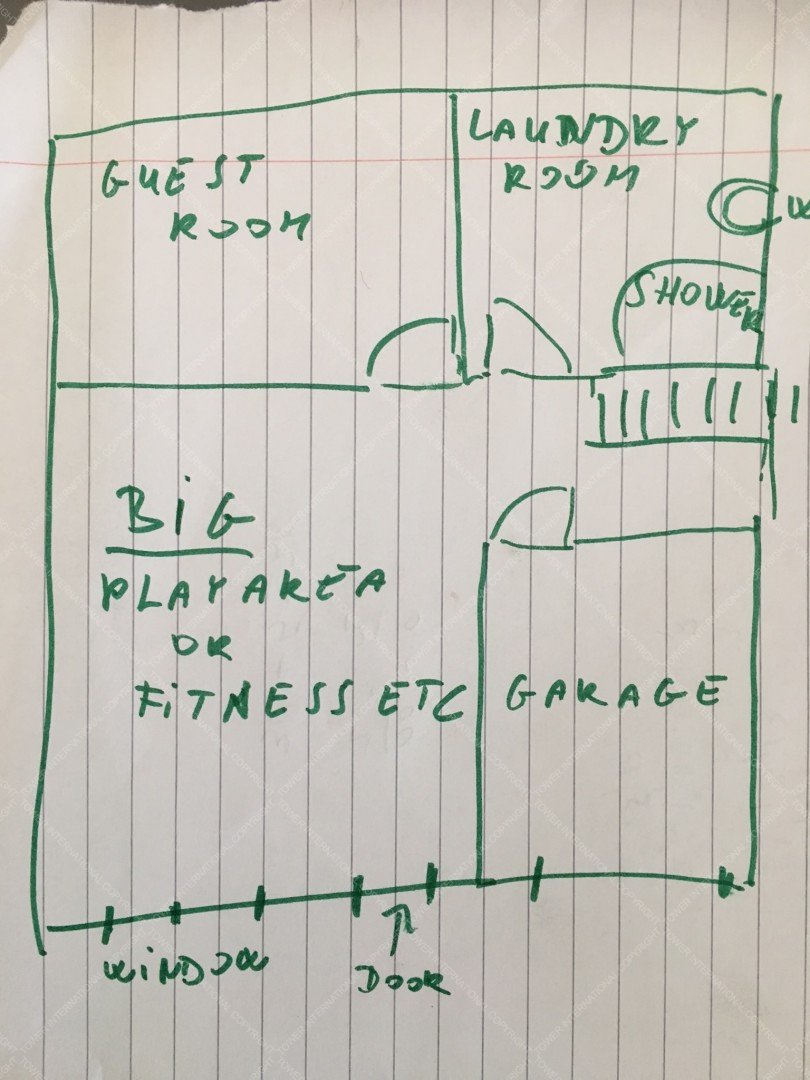 LAUNDRY
ROOM
GUEST
ROOM
SHOWER
BIG
PLAYAREA
OR
FITNESS ETC
GARAGE
WINDOW
DOOR